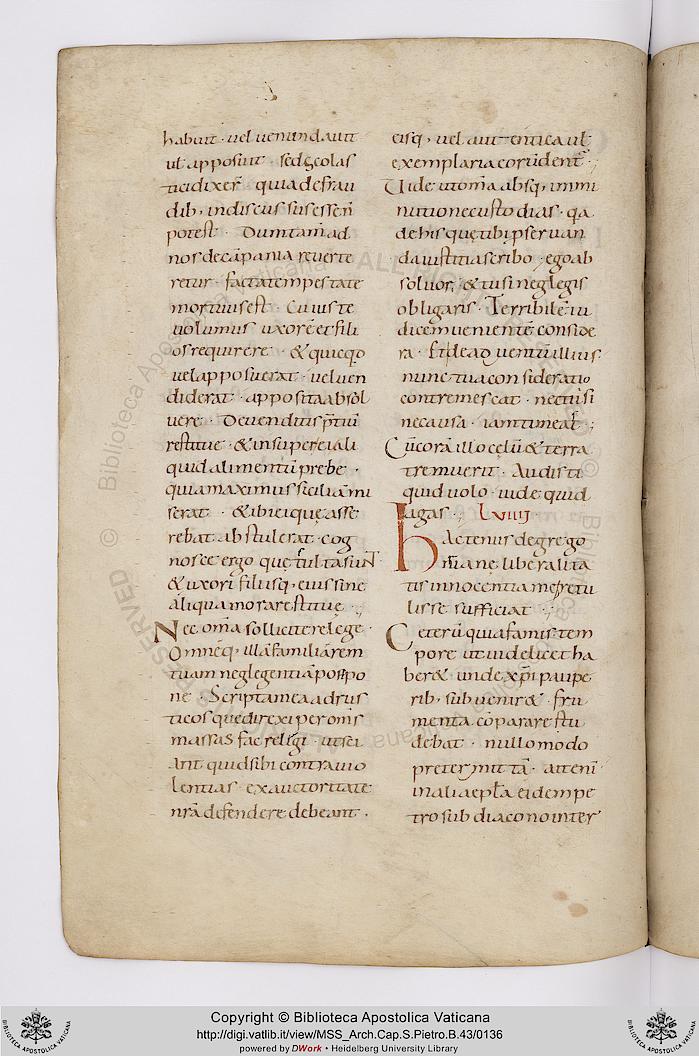 habuit · vel venundavit
ul̄ apposuit · sed & colas
tici dixer̄ quia defrau
dib; indiscussus essen̄
potest · Dum tam̄ ad
nos de cāpania reverte
retur · facta tempestate
mortuus est · Cuius te
volumus uxorē et fili
os requirere · & quicqd
vel apposuerat · vel ven
diderat · apposita absol
vere · De venditis p̄tiū
restitue · & insuper ei ali
quid alimentū prebe ·
quia maximus siciliā mi
serat · & ibi ei quę asse
rebat abstulerat · cog
nosce ergo quę tulta sunt
& uxori filiisq; eius sine
aliqua mora restitue ·;
Nec om̄a sollicite relege ·
Omnēq; illā familiārem
tuam neglegentiā postpo
ne · Scripta mea ad rus
ticos que direxi per om̄s
massas fac relegi · ut sci
ant quid sibi contra vio
lentias · ex auctoritate
nrā defendere debeant ·
eisq; vel autentica ul̄
exemplaria eorū dent̄ ·;
Vide ut om̄a absq; immi
nutione custodias · q̄a
de his quę tibi p servan
da iustitia scribo · ego ab
solvor; & tu si neglegis
obligaris · Terribilē iu
dicem venientē conside
ra · Et de adventū illius
nunc tua consideratio
contremescat · ne tu si
ne causa · iam timeat ·;
Cū corā illo cęlū & terra
tremuerit · Audisti
quid volo · vide quid
agas ·; LVIIII ·
Hactenus de grego
riane liberalita
tis innocentia me retu
lisse sufficiat ·;
Ceterū quia famis tem
pore ut videlicet ha
ber& unde xp̄i paupe
rib; subvenir& · fru
menta cōparare stu
debat · nullo modo
pretermittā · at ten̄
in alia epl̄a eidem pe
tro subdiacono inter
Copyright © Biblioteca Apostolica Vaticana
http://digi.vatlib.it/view/MSS_Arch.Cap.S.Pietro.B.43/0136
powered by DWork • Heidelberg University Library